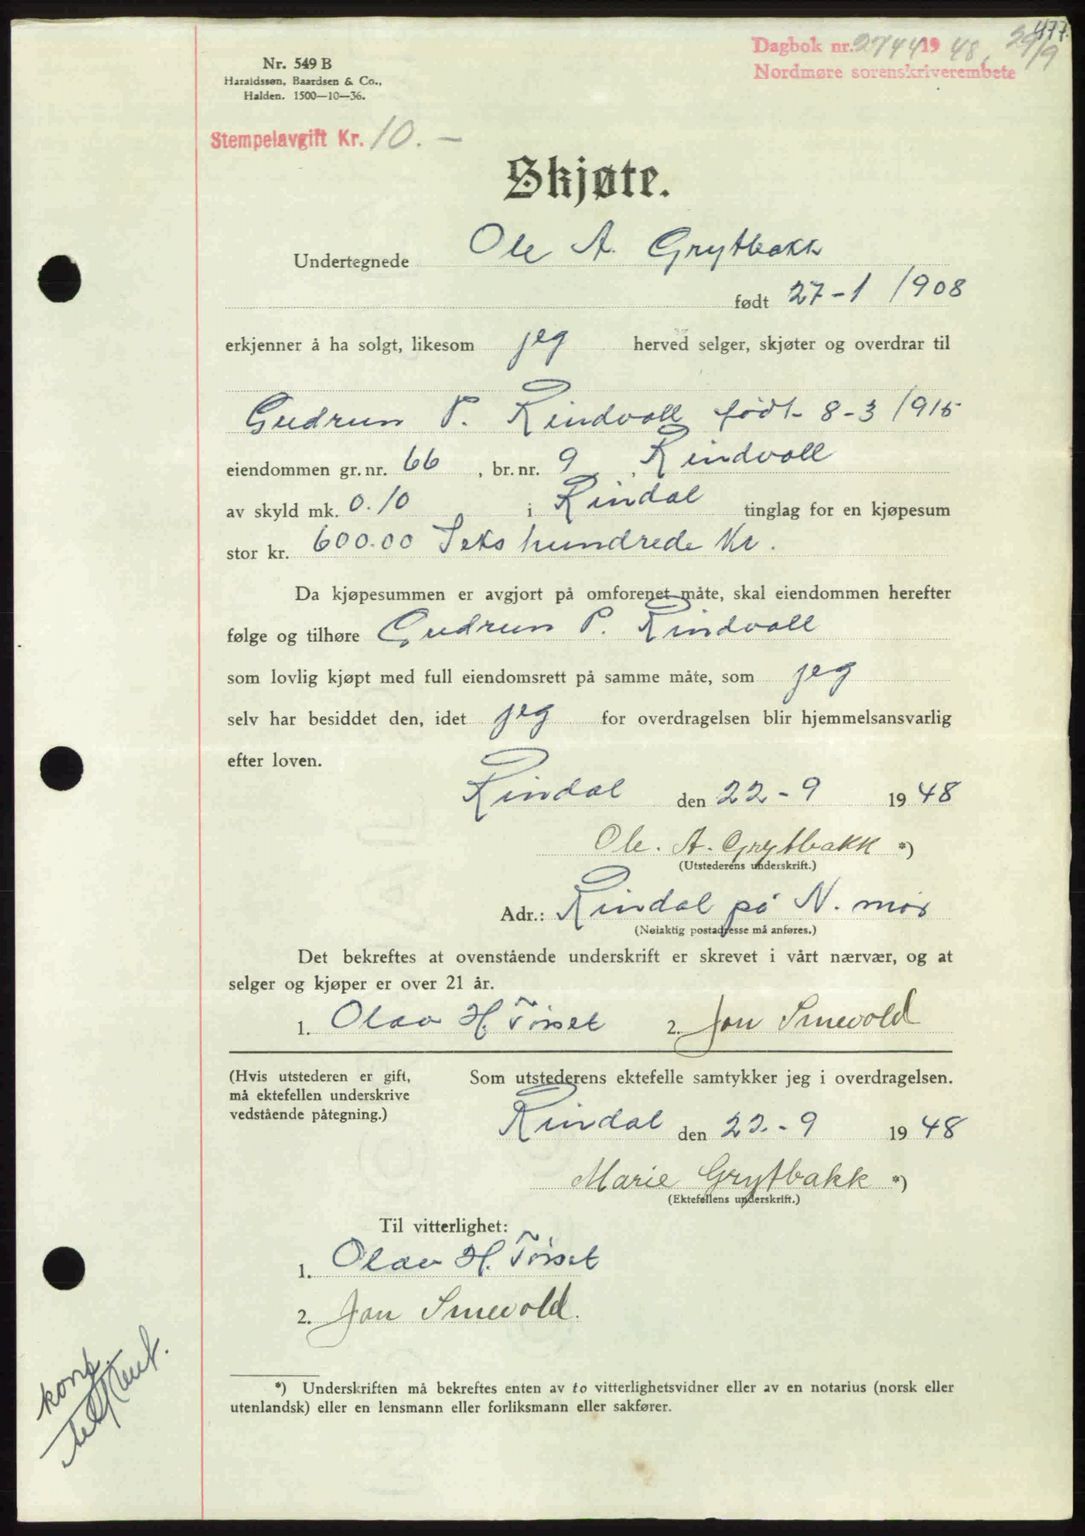 477.
Dagbok nr. 2744 1948, 29/9
Nordmøre sorenskriverembete
Nr. 549 B
Haraldssøn, Baardsen & Co.,
Halden. 1500—10—36.
Stempelavgift Kr. 10.—
Skjøte.
Undertegnede Ole A. Grytbakk
født 27-1 1908
erkjenner å ha solgt, likesom jeg herved selger, skjøter og overdrar til
Gudrun P. Rindvoll født 8-3 1915
eiendommen gr. nr. 66, br. nr. 9, Rindvoll
av skyld mk. 0.10 i Rindal tinglag for en kjøpesum
stor kr. 600.00 Seks hundrede Kr.
Da kjøpesummen er avgjort på omforenet måte, skal eiendommen herefter
følge og tilhøre Gudrun P. Rindvoll
som lovlig kjøpt med full eiendomsrett på samme måte, som jeg
selv har besiddet den, idet jeg for overdragelsen blir hjemmelsansvarlig
efter loven.
Rindal den 22-9 1948
Ole. A. Grytbakk *)
(Utstederens underskrift.)
Adr.: Rindal på N. mør
(Nøiaktig postadresse må anføres.)
Det bekreftes at ovenstående underskrift er skrevet i vårt nærvær, og at
selger og kjøper er over 21 år.
1. Olav H. Tørset 2. Jon Smevold
(Hvis utstederen er gift, Som utstederens ektefelle samtykker jeg i overdragelsen.
må ektefellen underskrive
vedstående påtegning.)
Rindal den 22.-9 1948
Marie Grytbakk *)
(Ektefellens underskrift.)
Til vitterlighet:
1. Olav H. Tørset
2. Jon Smevold.
konf.
*) Underskriften må bekreftes enten av to vitterlighetsvidner eller av en notarius (norsk eller
utenlandsk) eller en lensmann eller forliksmann eller sakfører.